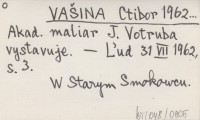 VAŠINA Ctibor 1962...
Akad. maliar J. Votruba
vystavuje. — Ľud 31 VII 1962,
s. 3.
W Starym Smokowcu.